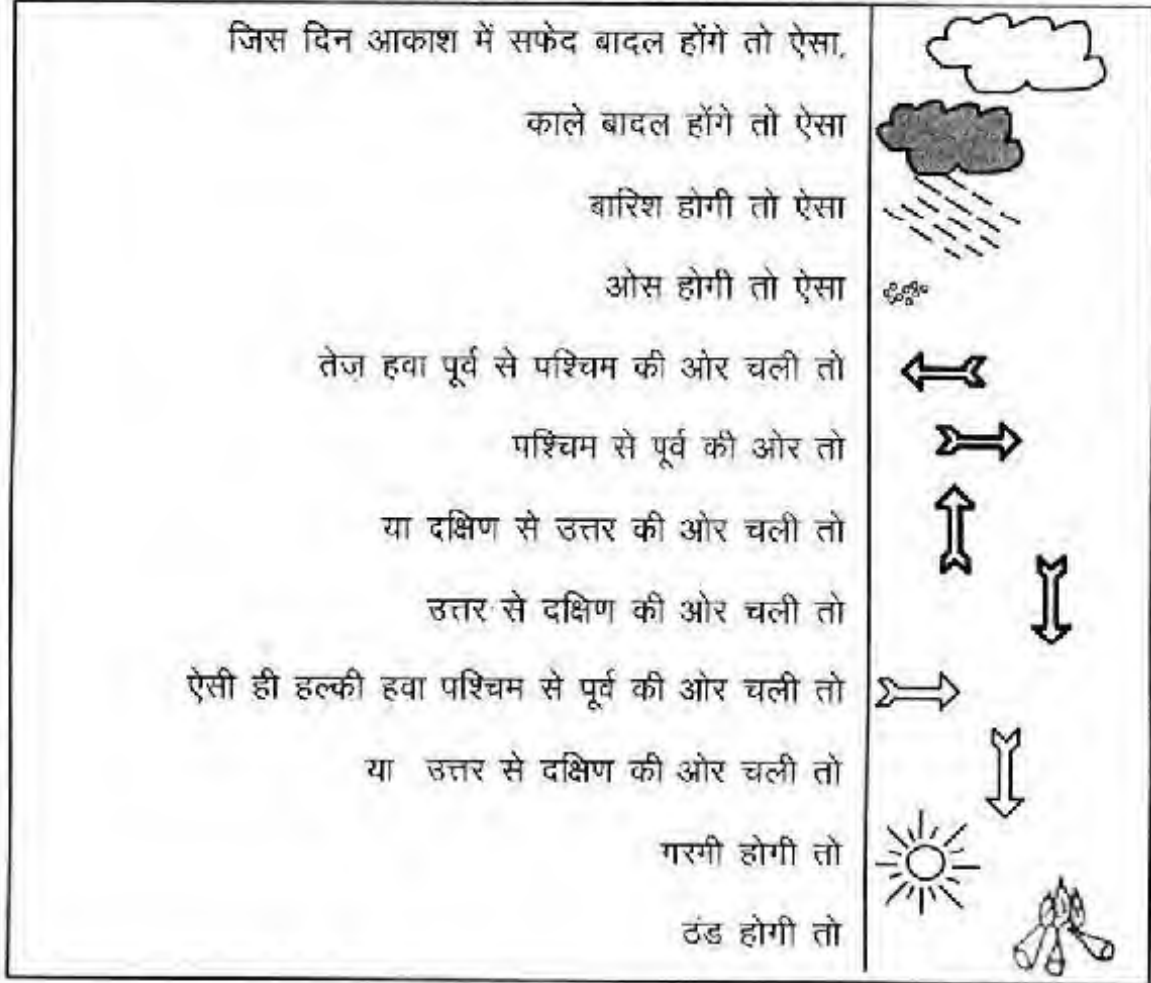 जिस दिन आकाश में सफेद बादल होंगे तो ऐसा,
काले बादल होंगे तो ऐसा
बारिश होगी तो ऐसा
ओस होगी तो ऐसा
तेज़ हवा पूर्व से पश्चिम की ओर चली तो
पश्चिम से पूर्व की ओर तो
या दक्षिण से उत्तर की ओर चली तो
उत्तर से दक्षिण की ओर चली तो
ऐसी ही हल्की हवा पश्चिम से पूर्व की ओर चली तो
या उत्तर से दक्षिण की ओर चली तो
गरगी होगी तो
ठंड होगी तो